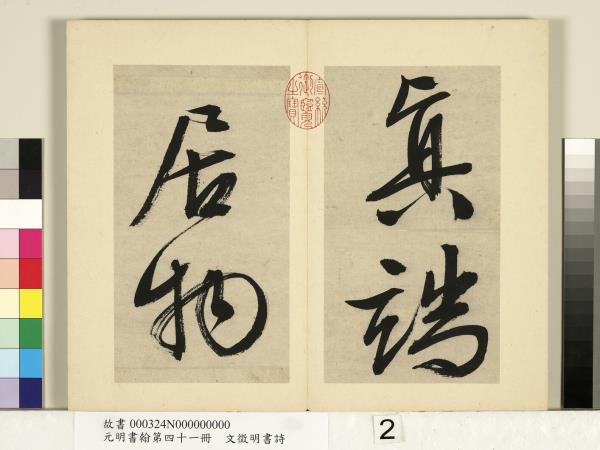 真端
居物
宣統御覽之寶
故書 000324N000000000
元明書翰第四十一冊　文徵明書詩
2